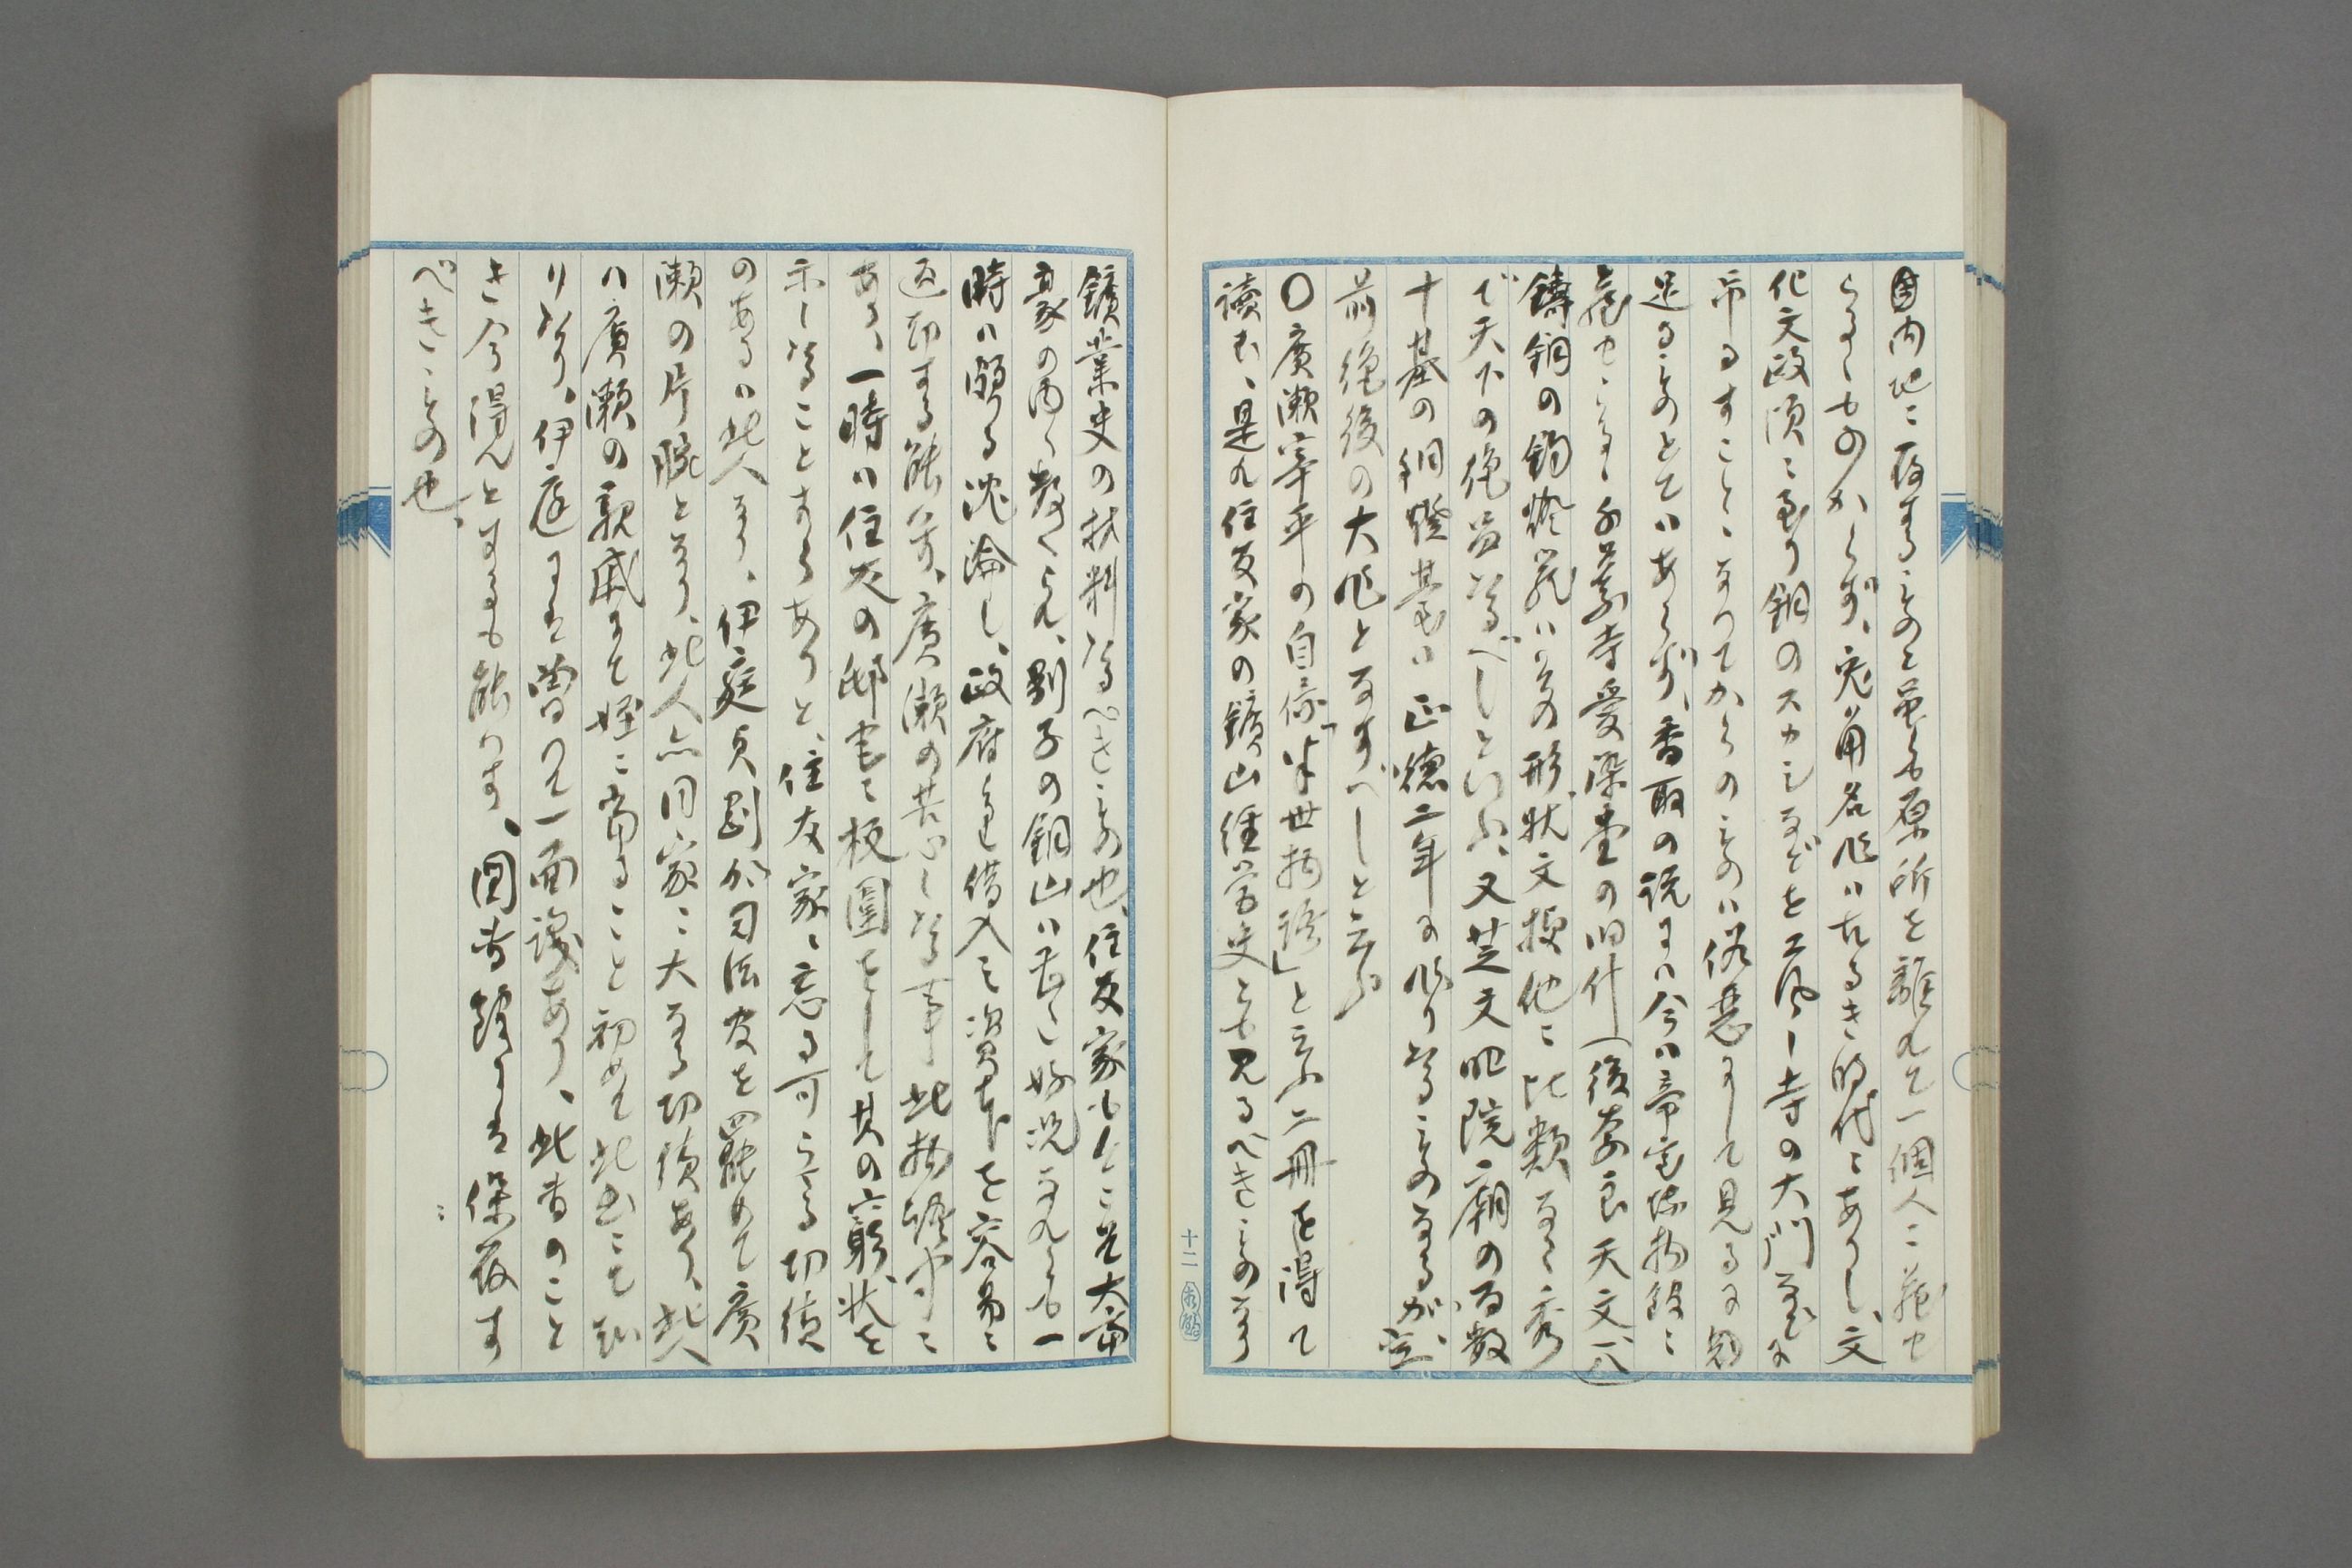 内地に存するものと雖も原所を離れて一個人に蔵せ
らるゝものからず、兎角名作ハ古るき時代にありし、文
化文政頃に至り銅のスカシなどを工風し寺の大門などに
吊るすことゝなりてからのものハ俗悪にして見るに
足るものとてハあらず、香取の説にハ今ハ帝室博物館に
蔵せらるゝ 寺愛染堂の旧什(後奈良天文八)
鋳銅の釣燈籠ハその形状文様他に比類なき秀
で天下の絶品なるべしといふ、又芝文昭院廟の百数
十基の銅燈基ハ正徳二年の作りなるものなるが、空
前絶後の大作となすべしと云ふ
〇廣瀬宰平の自伝「半世物語」と云ふ二冊を得て
読む、是れ住友家の鑛山経営史とも見るべきものなり
十二
鑛業史の材料なるべきもの也、住友家も今こそ大富
豪の内に数へらるれ、別子の銅山ハ甚しく好況なれども一
時ハ頗る沈淪し、政府より借入し資本を容易に
返却する能ハず、廣瀬の苦心しなる事ハ此物語中に
あり、一時ハ住友の邸宅に梗圃をして其の窮状を
示しなることすらありと、住友家に忘る可らざる功績
のあるハ此人なり、伊庭貞剛が司法官を罷めて廣
瀬の片腕となる、此人亦同家に大なる功績あり、此人
ハ廣瀬の親戚にて姪に当ることを初めて此書にて知
りなり、伊庭にハ曽つて一面識あり、此書のこと
き今得んとするも能ハず、図書館にハ保存す
べきもの也、